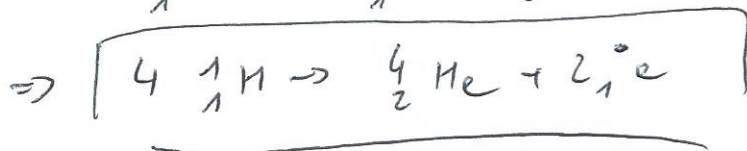 ⇒ 4 ¹₁H → ⁴₂He + 2 ⁰₁e